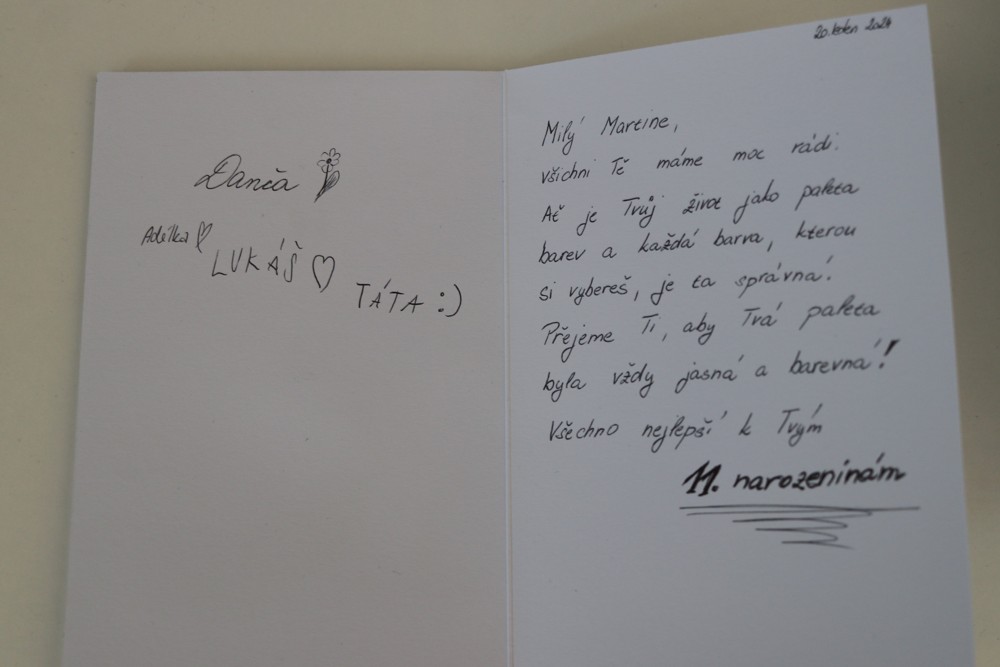 Danča
Adélka
LUKÁŠ
TÁTA :)
20. leden 2024
Milý Martine,
všichni Tě máme moc rádi.
Ať je Tvůj život jako paleta
barev a každá barva, kterou
si vybereš, je ta správná!
Přejeme Ti, aby Tvá paleta
byla vždy jasná a barevná!
Všechno nejlepší k Tvým
11. narozeninám